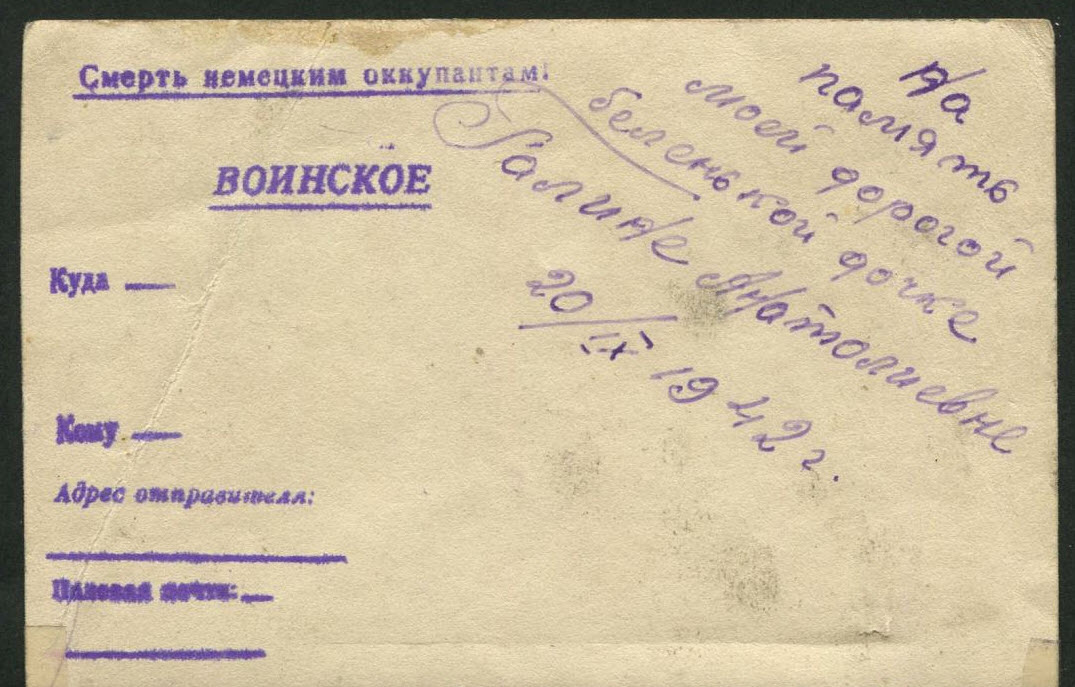 Смерть немецким оккупантам!
ВОИНСКОЕ
Куда
Кому
Адрес отправителя:
Полевая почта:
На
память
моей дорогой
беленькой дочке
Галине Анатолиевне
20/IX 1942 г.